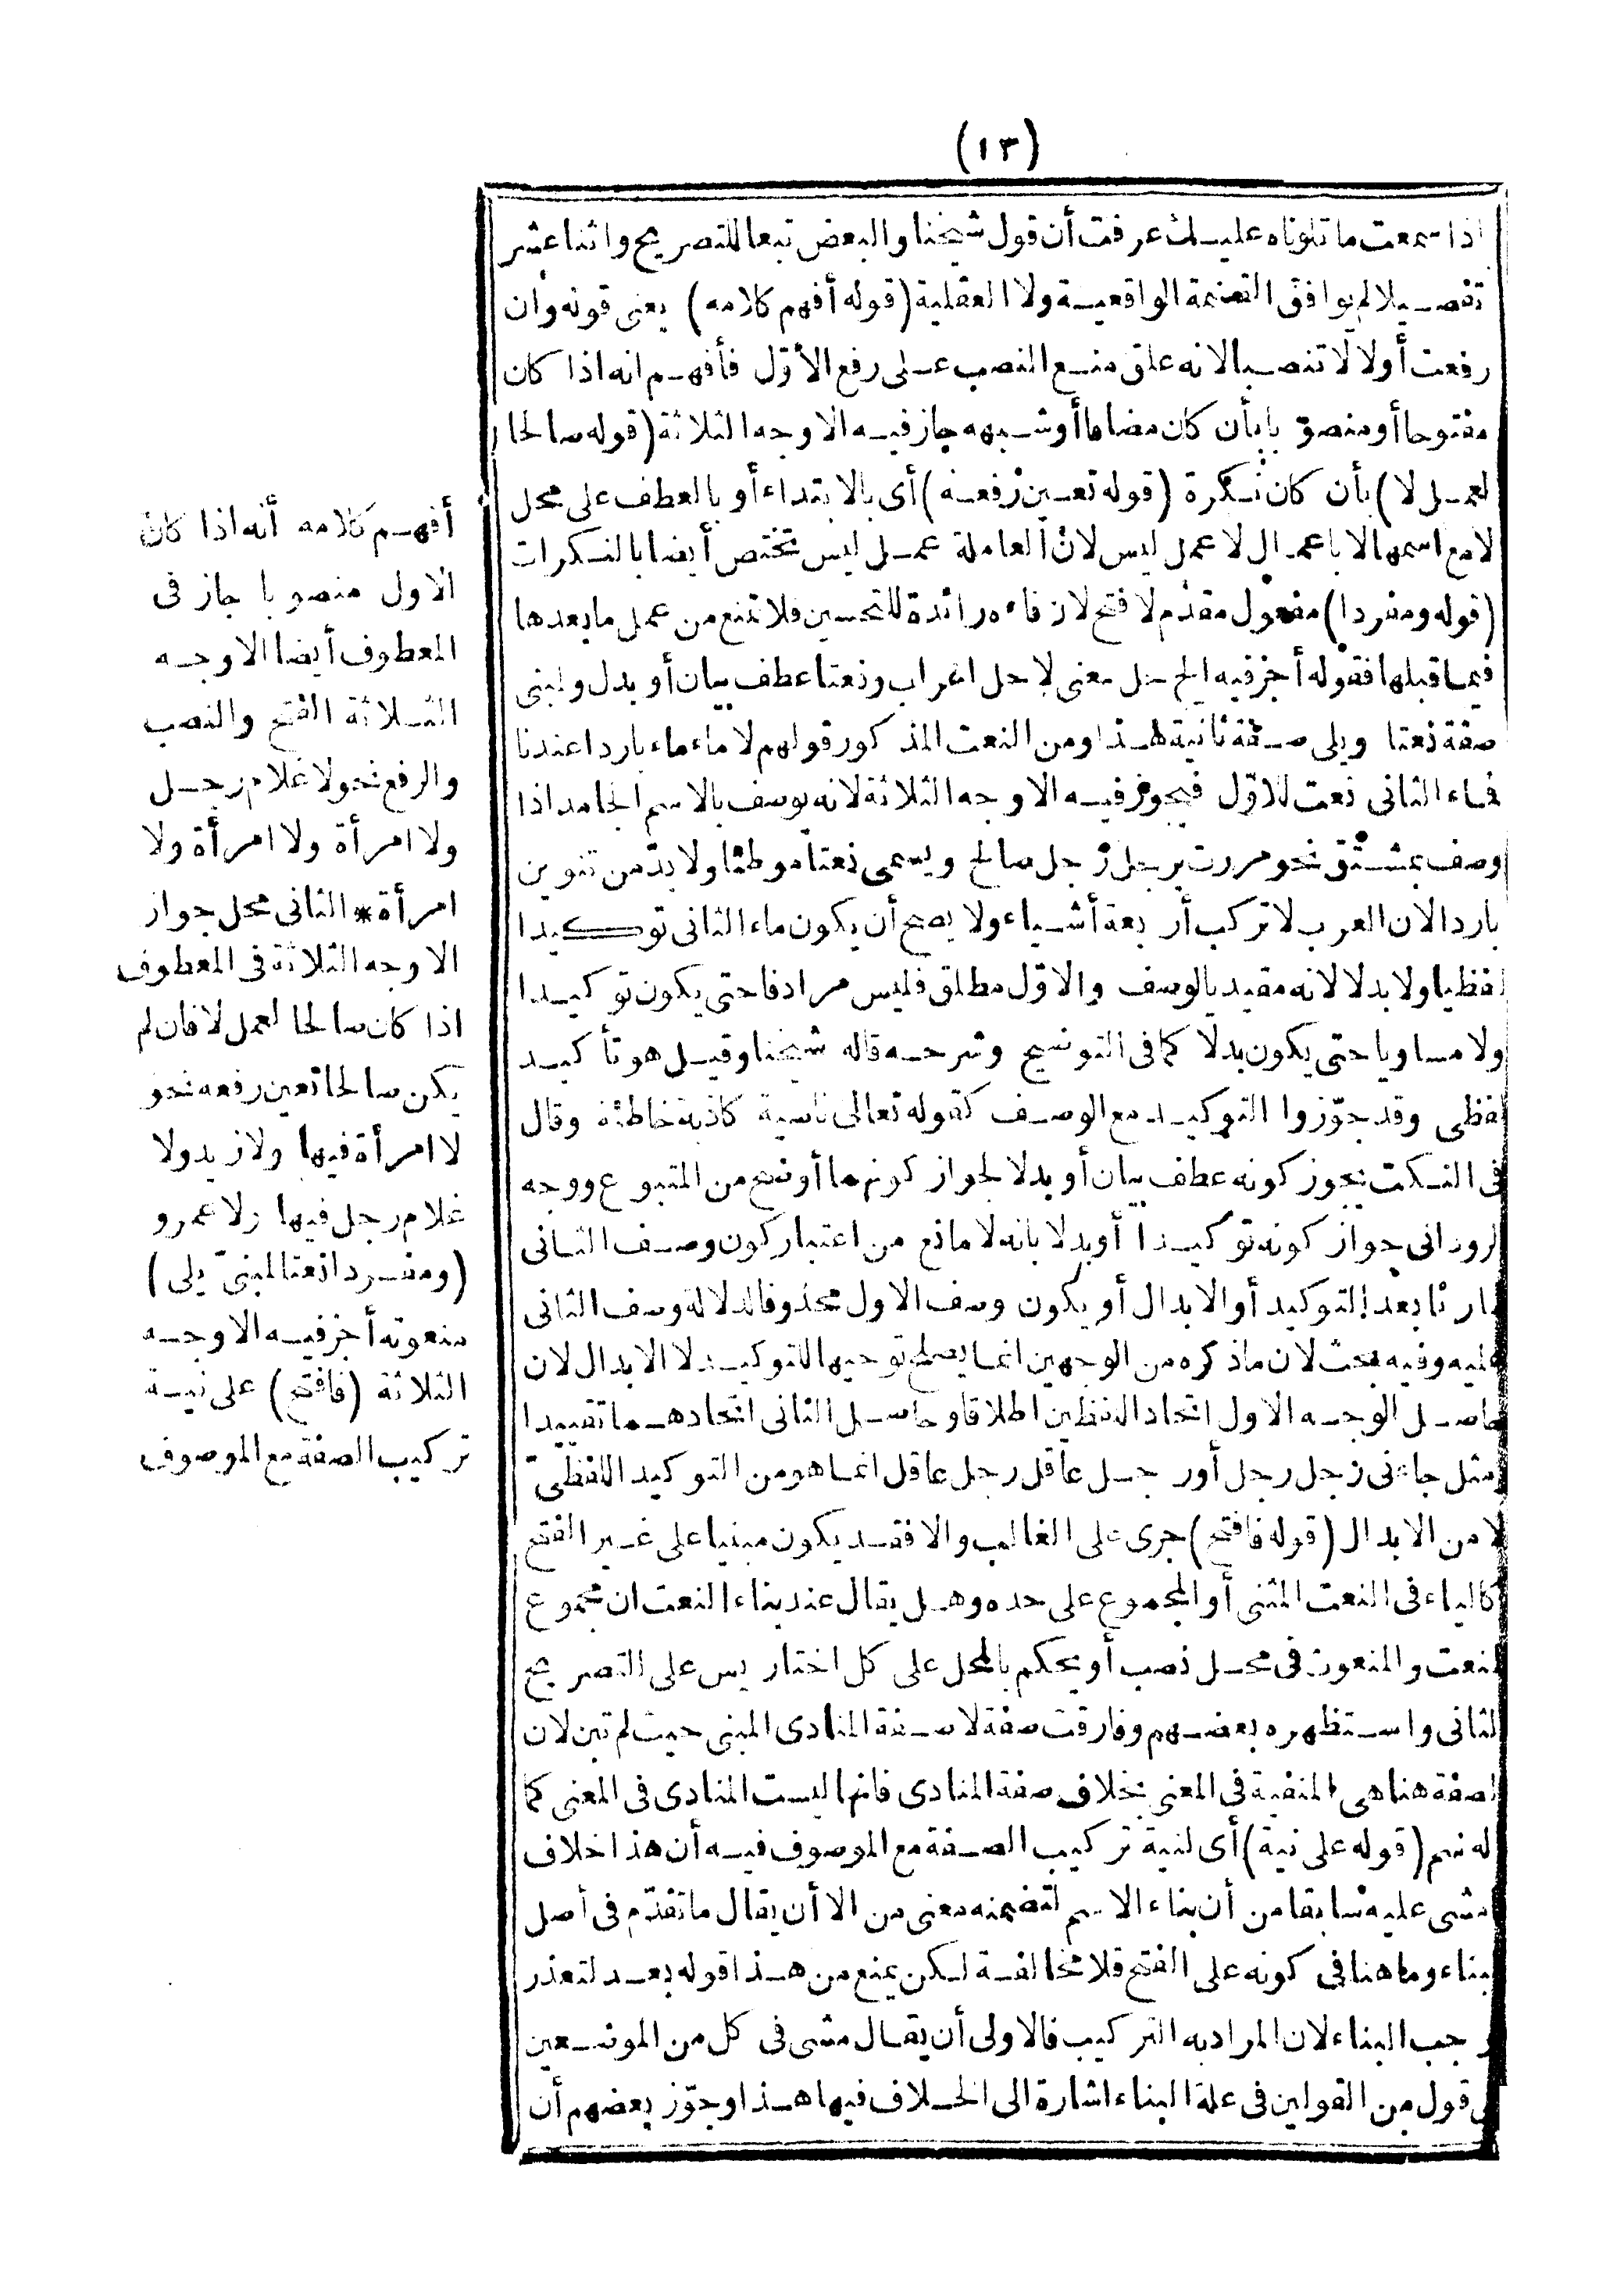 (١٣)
اذا سمعت ما تلوناه عليك عرفت أن قول شيخنا والبعض تبعا للتصريح واثنا عشر
تفصيلا لم يوافق القسمة الواقعية ولا العقلية (قوله أفهم كلامه) يعنى قوله وان
رفعت أولا لا تنصبا لانه علق منع النصب على رفع الأوّل فأفهم انه اذا كان
مفتوحا أو منصوبا بأن كان مضافا أو شبهه جاز فيه الاوجه الثلاثة (قوله صالحا
لعمل لا) بأن كان نكرة (قوله تعين رفعه) أى بالابتداء أو بالعطف على محل
لا مع اسمها لا باعمال لا عمل ليس لان العاملة عمل ليس تختص أيضا بالنكرات
(قوله ومفردا) مفعول مقدّم لافتح لان فاءه زائدة للتحسين فلا تمنع من عمل ما بعدها
فيما قبلها فقوله أجز فيه الخ حل معنى لا حل اعراب ونعتا عطف بيان أو بدل ولمبنى
صفة نعتا ويلى صفة ثانية هذا ومن النعت المذكور قولهم لا ماء ماء باردا عندنا
فماء الثانى نعت للاوّل فيجوز فيه الاوجه الثلاثة لانه يوصف بالاسم الجامد اذا
وصف بمشتق نحو مررت برجل رجل صالح ويسمى نعتا موطئا ولا بدّ من تنوين
باردا لان العرب لا تركب أربعة أشياء ولا يصح أن يكون ماء الثانى توكيدا
لفظيا ولا بدلا لانه مقيد بالوصف والاوّل مطلق فليس مرادفا حتى يكون توكيدا
ولا مساويا حتى يكون بدلا كما فى التوضيح وشرحه قاله شيخنا وقيل هو تأكيد
لفظى وقد جوّزوا التوكيد مع الوصف كقوله تعالى ناصية كاذبة خاطئة وقال
فى النكت يجوز كونه عطف بيان أو بدلا لجواز كونهما أوضح من المتبوع ووجه
الرودانى جواز كونه توكيدا أو بدلا بانه لا مانع من اعتبار كون وصف الثانى
طارئا بعد التوكيد أو الابدال أو يكون وصف الاول محذوفا لدلالة وصف الثانى
عليه وفيه بحث لان ما ذكره من الوجهين انما يصلح توجيها للتوكيد لا الابدال لان
حاصل الوجه الاول اتحاد اللفظين اطلاقا وحاصل الثانى اتحادهما تقييدا
ومثل جاءنى رجل رجل أو رجل عاقل رجل عاقل انما هو من التوكيد اللفظىّ
لا من الابدال (قوله فافتح) جرى على الغالب والا فقد يكون مبنيا على غير الفتح
كالياء فى النعت المثنى أو المجموع على حده وهل يقال عند بناء النعت ان مجموع
النعت والمنعوت فى محل نصب أو يحكم بالمحل على كل اختار يس على التصريح
الثانى واستظهره بعضهم وفارقت صفة لا صفة المنادى المبنى حيث لم تبن لان
الصفة هنا هى المنفية فى المعنى بخلاف صفة المنادى فانها ليست المنادى فى المعنى كما
قاله سم (قوله على نية) أى لنية تركيب الصفة مع الموصوف فيه أن هذا خلاف
ما مشى عليه سابقا من أن بناء الاسم لتضمنه معنى من الا أن يقال ما تقدّم فى أصل
البناء وما هنا فى كونه على الفتح فلا مخالفة لكن يمنع من هذا قوله بعد لتعذر
موجب البناء لان المراد به التركيب فالاولى أن يقال مشى فى كل من الموضعين
على قول من القولين فى علة البناء اشارة الى الخلاف فيها هذا وجوّز بعضهم أن
أفهم كلامه أنه اذا كان
الاول منصوبا جاز فى
المعطوف أيضا الاوجه
الثلاثة الفتح والنصب
والرفع نحو لا غلام رجل
ولا امرأة ولا امرأة ولا
امرأة * الثانى محل جواز
الاوجه الثلاثة فى المعطوف
اذا كان صالحا لعمل لا فان لم
يكن صالحا تعين رفعه نحو
لا امرأة فيها ولا زيد ولا
غلام رجل فيها ولا عمرو
(ومفردا نعتا لمبنىّ يلى)
منعوته أجز فيه الاوجه
الثلاثة (فافتح) على نية
تركيب الصفة مع الموصوف